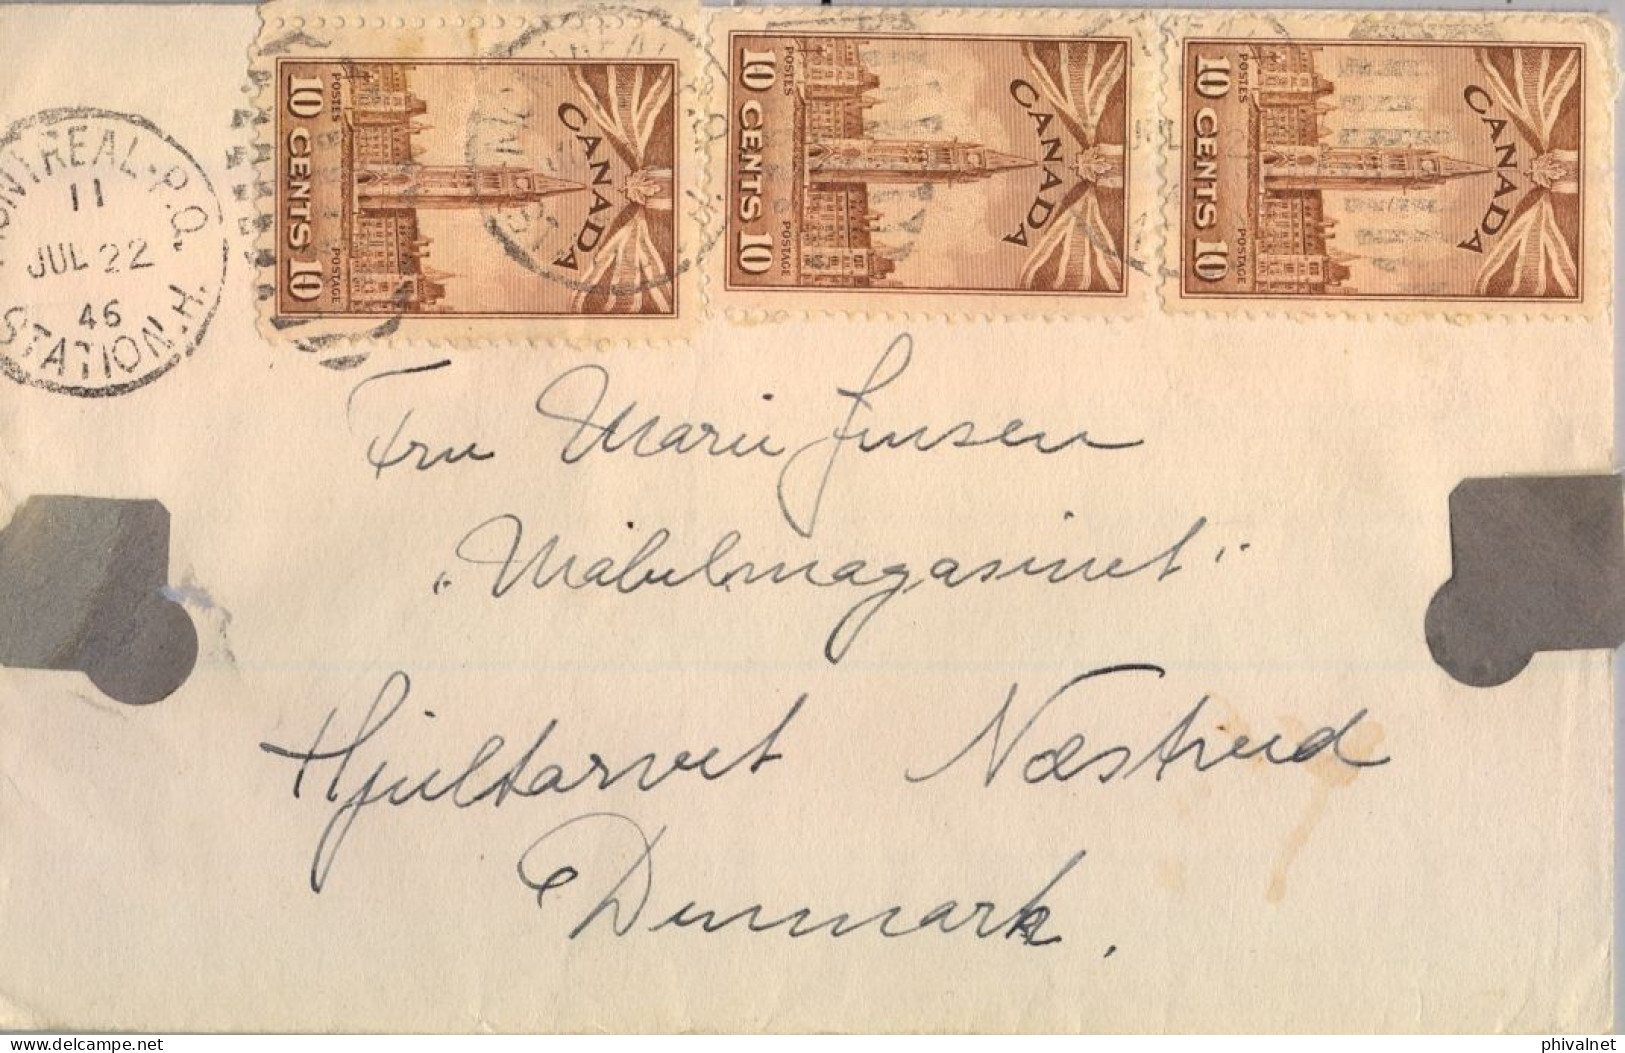 MONTREAL. P.Q.
11
JUL 22
46
STATION. H.
10 CENTS 10
POSTES
POSTAGE
CANADA
10 CENTS 10
POSTES
POSTAGE
CANADA
10 CENTS 10
POSTES
POSTAGE
CANADA
Fru Marie Jensen
"Møbelmagasinet"
Hjultorvet Næstved
Denmark.
https://www.delcampe.net
phivalnet